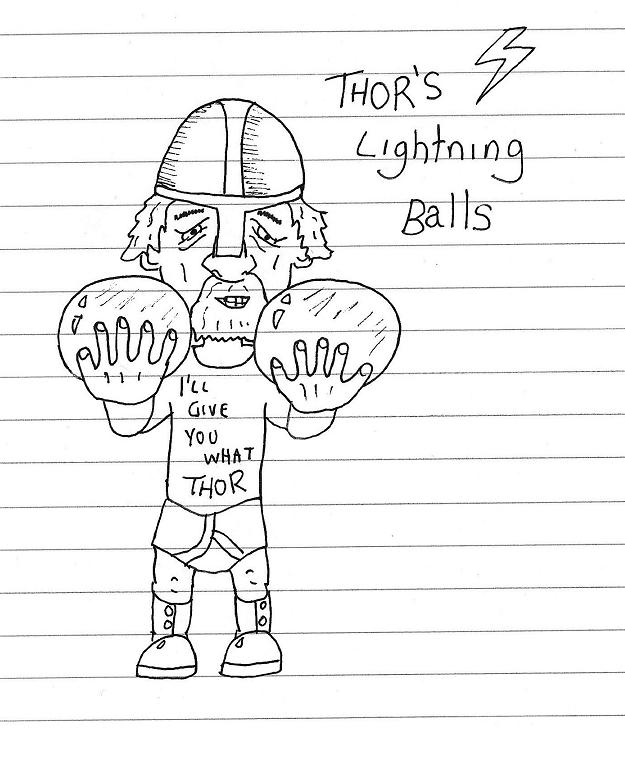 THOR'S
Lightning
Balls
I'LL
GIVE
YOU
WHAT
THOR